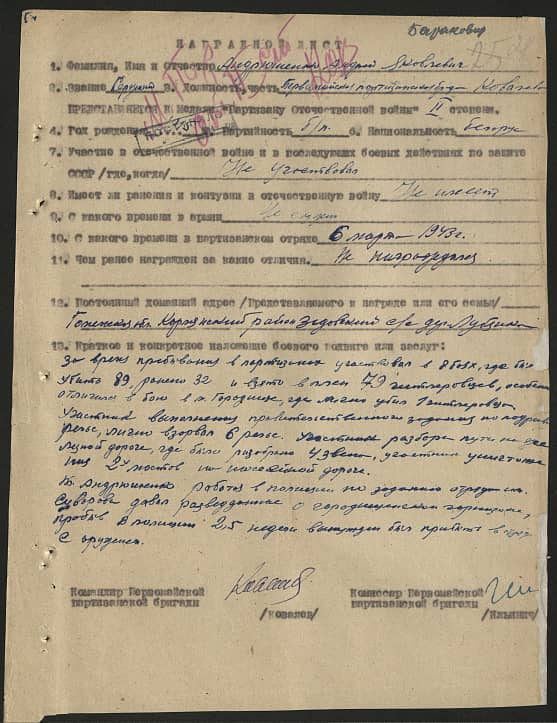 Баранович
НАГРАДНОЙ ЛИСТ
1. Фамилия, Имя и Отчество Андрюшенко Андрей Яковлевич
2. Звание Сержант 3. Должность, часть Первомайская партизанская
ПРЕДСТАВЛЯЕТСЯ К Медали "Партизану Отечественной войны" II степени.
4. Год рождения 5. Партийность б/п. 6. Национальность белорус
7. Участие в отечественной войне и в последующих боевых действиях по защите
СССР /где, когда/ Не участвовал
8. Имеет ли ранения и контузии в отечественную войну Не имеет
9. С какого времени в армии Не служит
10. С какого времени в партизанском отряде 6 марта 1943 г.
11. Чем ранее награжден за какие отличия. Не награждался
12. Постоянный домашний адрес /Представляемого к награде или его семьи/
Гомельская обл. Кормянский район с/с дер.
13. Краткое и конкретное изложение боевого подвига или заслуг:
За время пребывания в партизанах участвовал в 8 боях, где было
убито 89, ранено 32 и взято в плен 79 гитлеровцев, особенно
отличился в бою в м. Городище, где лично убил 1 гитлеровца.
Участник выполнения правительственного задания по подрыву
рельс, лично взорвал 6 рельс. Участник разбора пути на железной дороге, где было разобрано 4 звена, участник уничтожения
2х мостов на шоссейной дороге.
т. Андрюшенко работая в полиции по заданию отряда им.
Суворова давал разведданные о городищенском гарнизоне,
пробыв в полиции 2,5 недели вынужден был прибыть в отряд
с оружием.
Командир Первомайской
партизанской бригады
/Ковалев/
Комиссар Первомайской
партизанской бригады
/Ильинич/